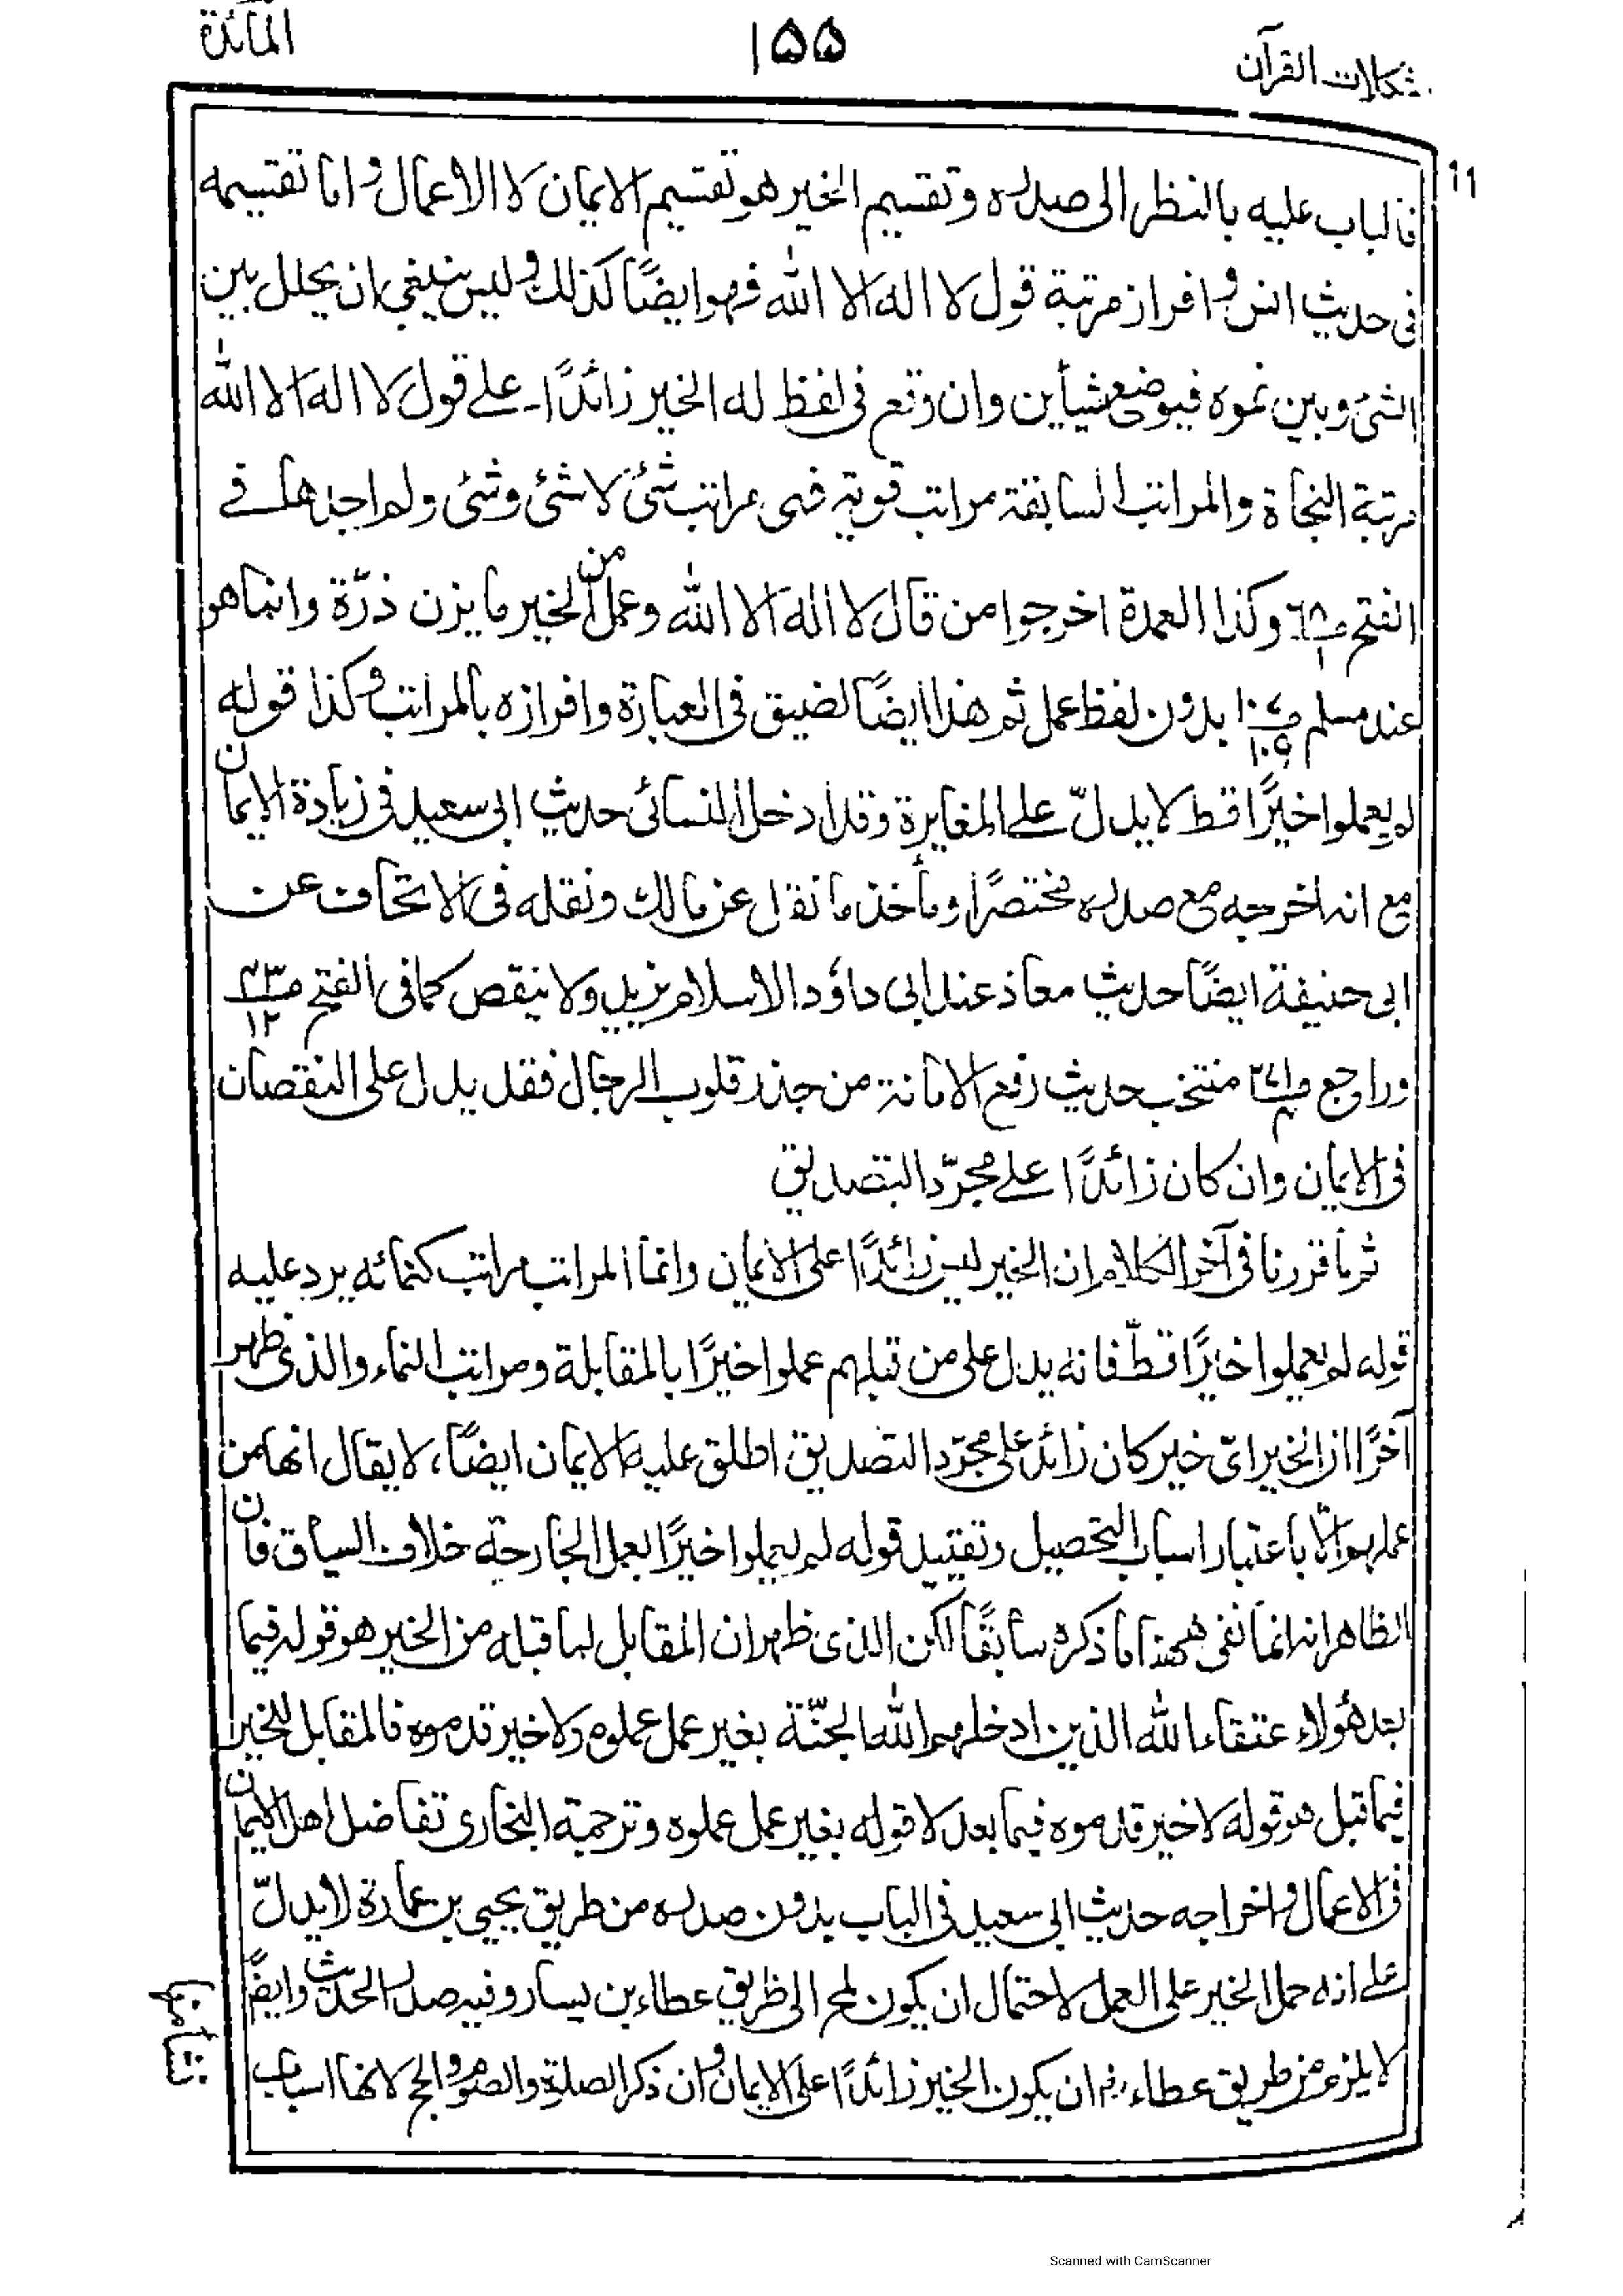 مشكلات القرآن
١٥٥
المائدة
فالباب عليه بالنظر الى صدره وتقسيم الخير هو تقسيم الايمان لا الاعمال واما تقسيمه
فى حديث انس وافراز مرتبة قول لا اله الا الله فهو ايضًا كذلك وليس ينبغى ان يحلل بين
الشئ وبين نموه فيوضع شيأين وان وقع فى لفظ له الخير زائدًا۔ على قول لا اله الا الله
مرتبة النجاة والمراتب السابقة مراتب قوته فهى مراتب شئ لا شئ وشئ ولم اجدها فى
الفتح ص٦٨/١ وكذا العمدة اخرجوا من قال لا اله الا الله وعمل من الخير ما يزن ذرّة وانما هو
عند مسلم بدون لفظ عمل ثم هذا ايضًا لضيق فى العبارة وافرازه بالمراتب وكذا قوله
لم يعملوا خيرًا قط لا يدلّ على المغايرة وقد ادخل النسائى حديث ابى سعيد فى زيادة الايمان
مع انه اخرجه مع صدره مختصرًا ومأخذ ما نقل عن مالك ونقله فى الاتحاف عن
ابى حنيفة ايضًا حديث معاذ عند ابى داؤد الاسلام يزيد ولا ينقص كما فى الفتح ص٤٣/١٢
وراجع منتخب حديث رفع الامانة من جذر قلوب الرجال فقد يدل على النقصان
فى الايمان وان كان زائدًا على مجرّد التصديق
ثم ما قررنا فى آخر الكلام ان الخير ليس زائدًا على الايمان وانما المراتب مراتب كنمائه يرد عليه
قوله لم يعملوا خيرًا قطّ فانه يدل على من قبلهم عملوا خيرًا بالمقابلة ومراتب النماء والذى ظهر
آخرًا ان الخير اىّ خير كان زائد على مجرّد التصديق اطلق عليه الايمان ايضًا، لا يقال انها من
عملهم الّا باعتبار اسباب التحصيل وتقييد قوله لم يعملوا خيرًا بعمل الجارحة خلاف السياق فان
الظاهر انه انما نفى ههنا ما ذكره سابقًا لكن الذى ظهر ان المقابل لما قبله من الخير هو قوله فيما
بعد هؤلاء عتقاء الله الذين ادخلهم الله الجنّة بغير عمل عملوه ولا خير قدموه فالمقابل للخير
فيما قبل هو قوله لا خير قدموه فيما بعد لا قوله بغير عمل عملوه وترجمة البخارى تفاضل اهل الايمان
فى الاعمال واخراجه حديث ابى سعيد فى الباب بدون صدره من طريق يحيى بن عمارة لا يدلّ
على انه حمل الخير على العمل لاحتمال ان يكون لمح الى طريق عطاء بن يسار وفيه صدر الحديث وايضًا
لا يلزم من طريق عطاء ان يكون الخير زائدًا على الايمان وان ذكر الصلوة والصوم والحج لانها اسباب
Scanned with CamScanner